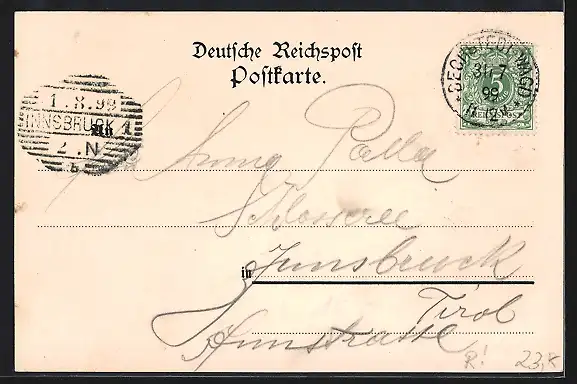 Deutsche Reichspost
Postkarte.
SEEHAUSEN
31/7
99
REICHSPOST
1.8.99
INNSBRUCK 1
2.N
b
Anna
Schlosserei
in Innsbruck
Tirol
Innstrasse
R! 23,-